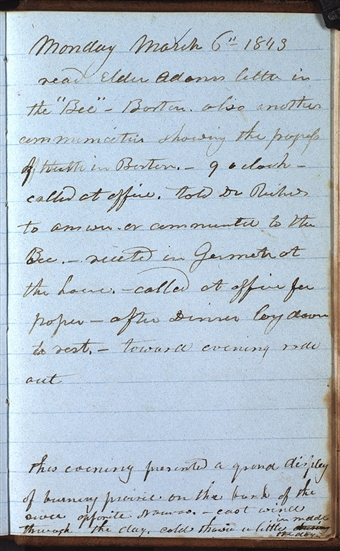 Monday March 6th 1843
read Elder Adams letter in
the "Bee" - Boston. also another
communication showing the progress
of truth in Boston. - 9 o clock -
called at office. told Dr Richards
to answer or communicate to the
Bee. - recited in German at
the house. - called at office for
paper - after Dinner lay down
to rest. - toward evening rode
out
This evening presented a grand display
of burning prairie on the bank of the
river opposite Nauvoo. - east wind
through the day. cold thaw a little in middle
the day.